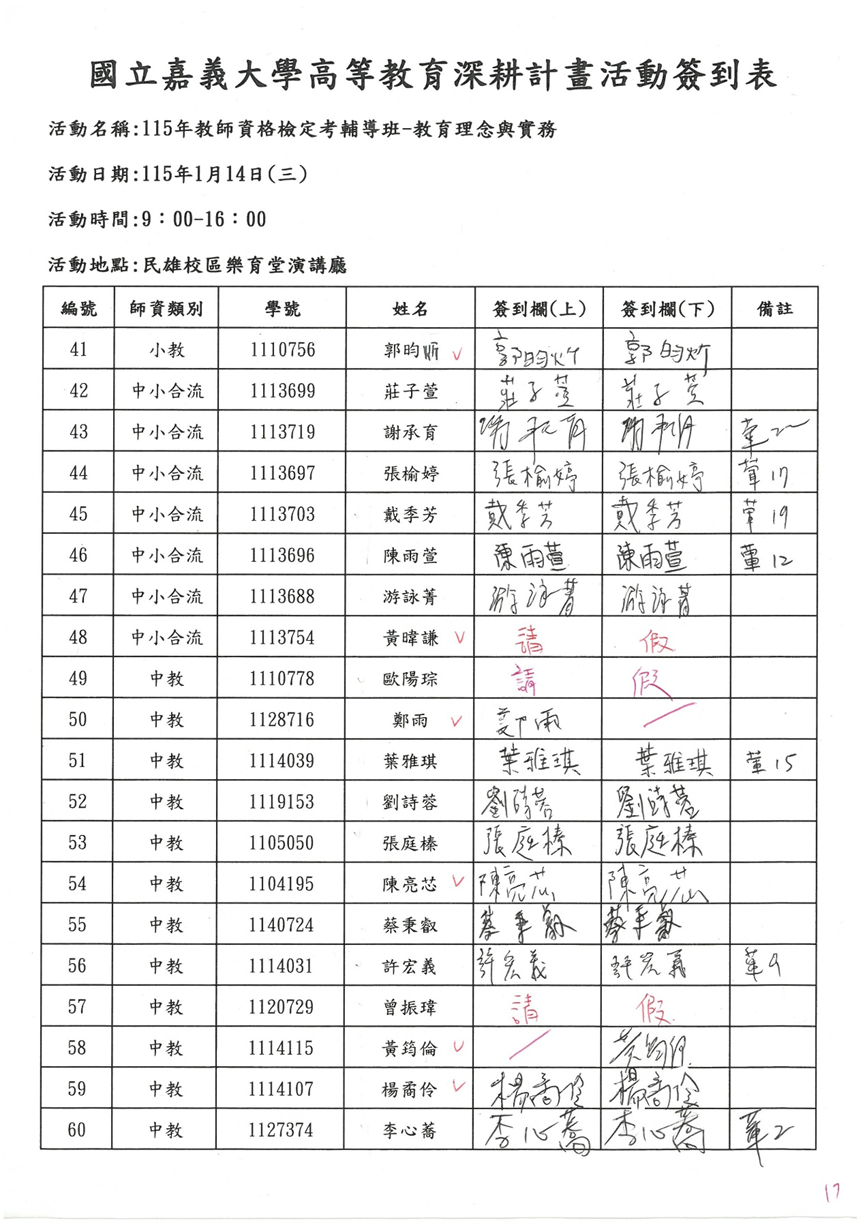 國立嘉義大學高等教育深耕計畫活動簽到表
活動名稱:115年教師資格檢定考輔導班-教育理念與實務
活動日期:115年1月14日(三)
活動時間:9:00-16:00
活動地點:民雄校區樂育堂演講廳
編號 師資類別 學號 姓名 簽到欄(上) 簽到欄(下) 備註
41 小教 1110756 郭昀炘 ✓ 郭昀炘 郭昀炘
42 中小合流 1113699 莊子萱 莊子萱 莊子萱
43 中小合流 1113719 謝承育 謝承育 謝承育
44 中小合流 1113697 張榆婷 張榆婷 張榆婷 葷17
45 中小合流 1113703 戴季芳 戴季芳 戴季芳 葷19
46 中小合流 1113696 陳雨萱 陳雨萱 陳雨萱 葷12
47 中小合流 1113688 游詠菁 游詠菁 游詠菁
48 中小合流 1113754 黃暐謙 ✓ 請 假
49 中教 1110778 歐陽琮 請 假
50 中教 1128716 鄭雨 ✓ 鄭雨 /
51 中教 1114039 葉雅琪 葉雅琪 葉雅琪 葷15
52 中教 1119153 劉詩蓉 劉詩蓉 劉詩蓉
53 中教 1105050 張庭榛 張庭榛 張庭榛
54 中教 1104195 陳亮芯 ✓ 陳亮芯 陳亮芯
55 中教 1140724 蔡秉叡 蔡秉叡 蔡秉叡
56 中教 1114031 許宏義 許宏義 許宏義 葷9
57 中教 1120729 曾振瑋 請 假
58 中教 1114115 黃筠倫 ✓ / 黃筠倫
59 中教 1114107 楊喬伶 ✓ 楊喬伶 楊喬伶
60 中教 1127374 李心蕎 李心蕎 李心蕎 葷2
17